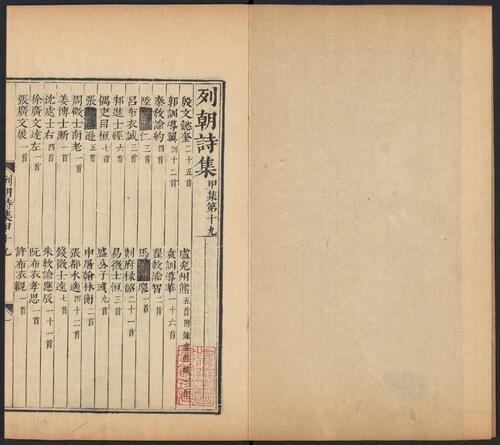 列朝詩集甲集第十九
殷文懿奎二十五首
盧兗州熊五首
郭訓導翼四十二首
袁訓導華一十六首
秦教諭約四首
瞿教諭智二首
陸 仁三首
馬 麐一首
呂布衣誠三首
郯進士經六首
易徵士恒三首
偶吏目桓七首
盛公子彧九首
張 遜五首
申屠翰林衡二首
周徵士南老一首
張都水適四十二首
姜博士漸一首
錢徵士逵七首
沈處士右四首
朱教諭應辰一十一首
徐廣文達左一首
阮布衣孝思一首
張廣文展一首
許布衣觀一首
列朝詩集甲十九
一